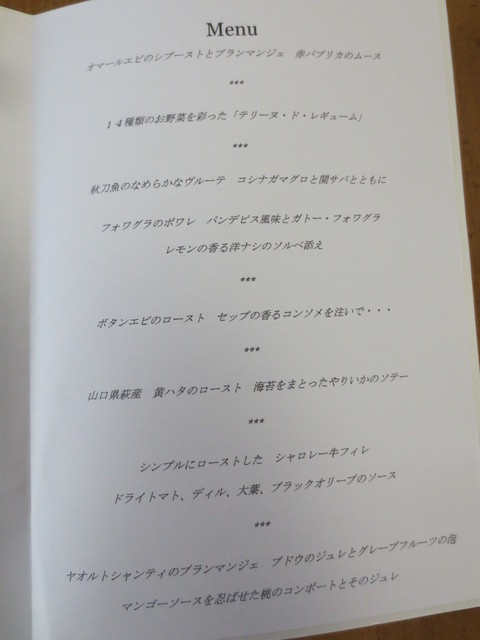 Menu
オマールエビのシブーストとブランマンジェ　赤パプリカのムース
***
１４種類のお野菜を彩った「テリーヌ・ド・レギューム」
***
秋刀魚のなめらかなヴルーテ　コシナガマグロと関サバとともに
フォワグラのポワレ　パンデピス風味とガトー・フォワグラ
レモンの香る洋ナシのソルベ添え
***
ボタンエビのロースト　セップの香るコンソメを注いで・・・
***
山口県萩産　黄ハタのロースト　海苔をまとったやりいかのソテー
***
シンプルにローストした　シャロレー牛フィレ
ドライトマト、ディル、大葉、ブラックオリーブのソース
***
ヤオルトシャンティのブランマンジェ　ブドウのジュレとグレープフルーツの泡
マンゴーソースを忍ばせた桃のコンポートとそのジュレ